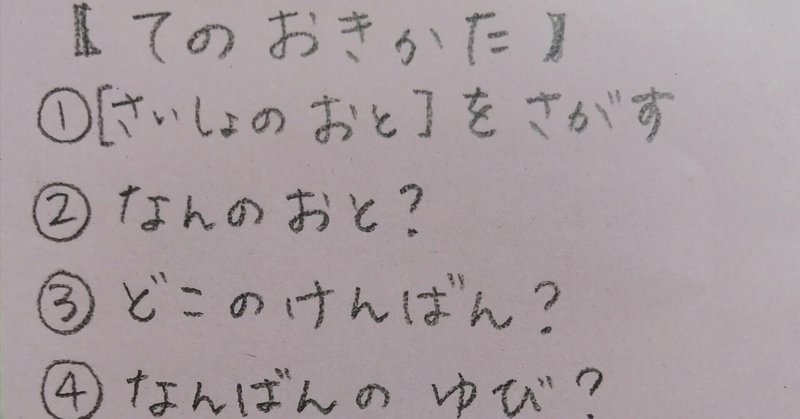 【てのおきかた】
①[さいしょのおと]をさがす
②なんのおと?
③どこのけんばん?
④なんばんのゆび?